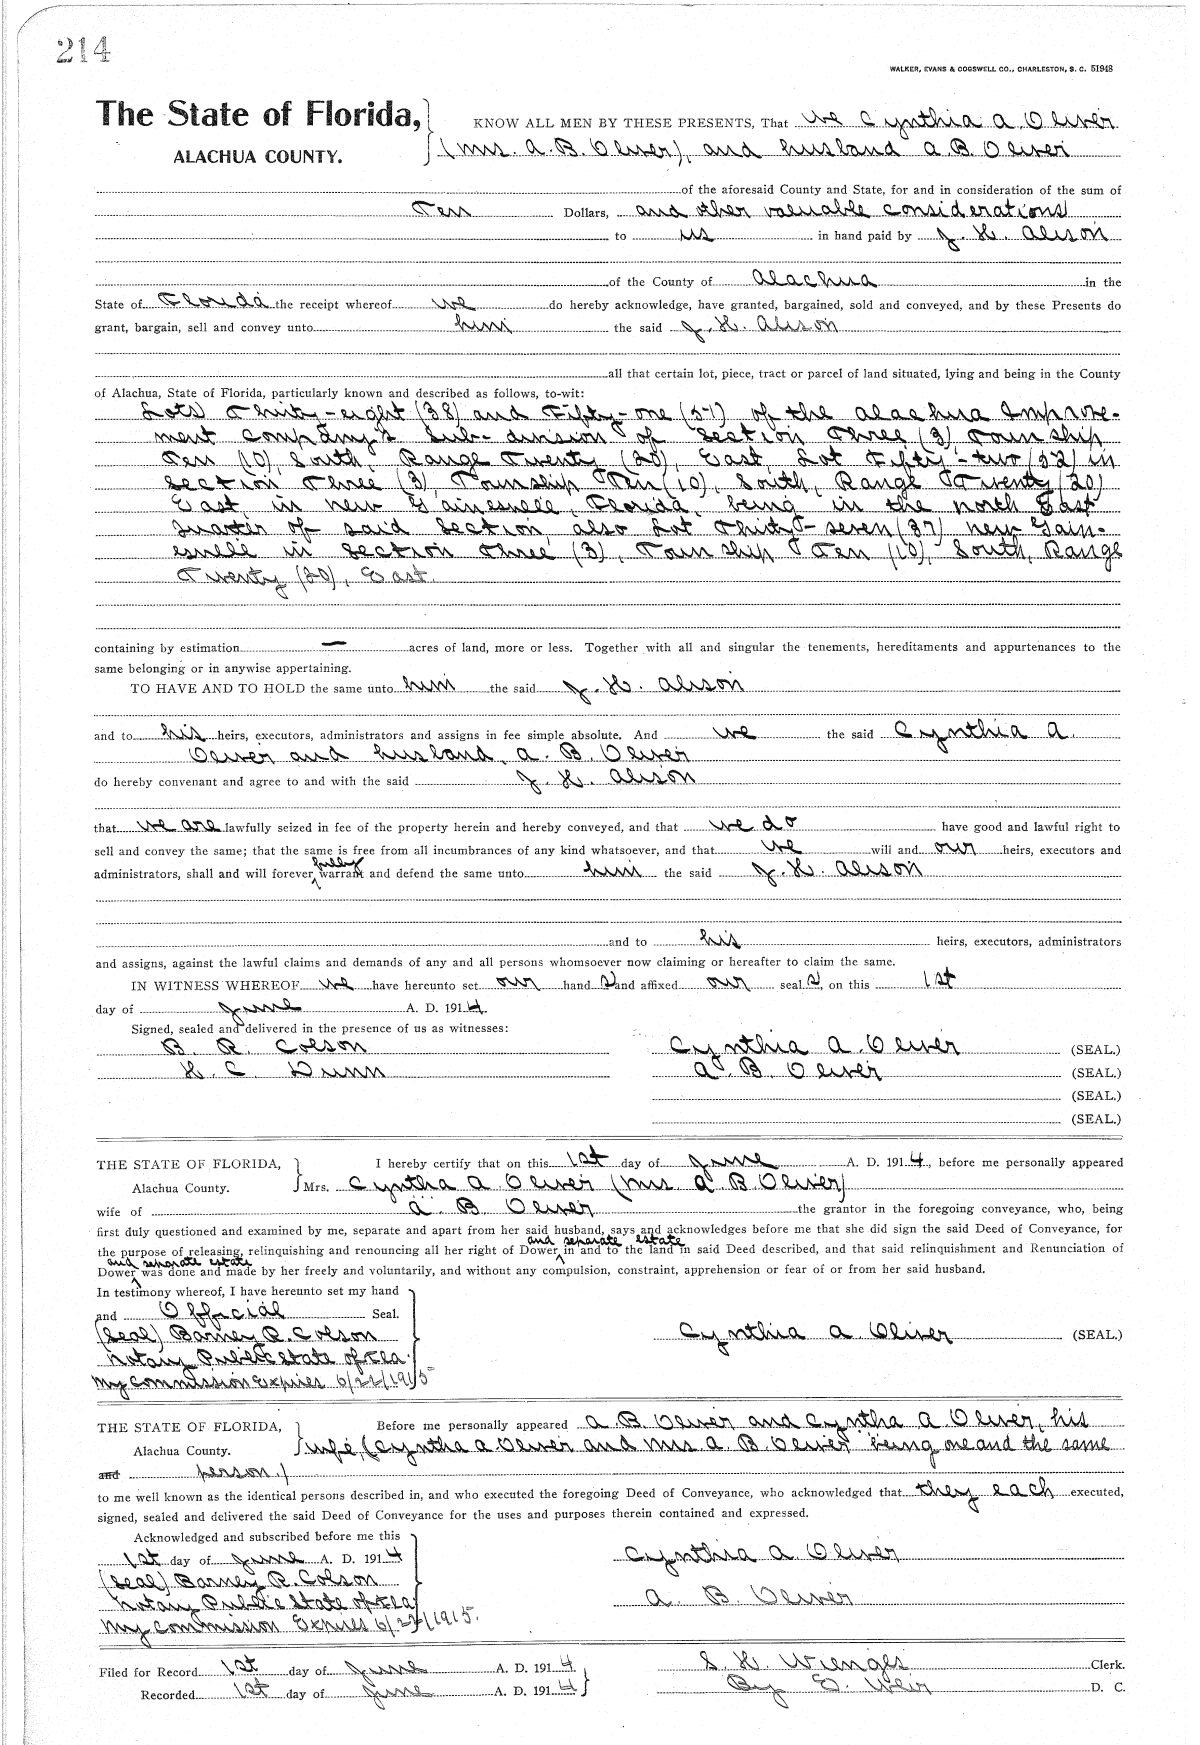 214
WALKER, EVANS & COGSWELL CO., CHARLESTON, S. C. 51948
The State of Florida,
ALACHUA COUNTY.
KNOW ALL MEN BY THESE PRESENTS, That we Cynthia A. Oliver
(Mrs. A. B. Oliver), and husband A. B. Oliver
of the aforesaid County and State, for and in consideration of the sum of
Ten Dollars, and other valuable considerations
to us in hand paid by J. H. Alison
of the County of Alachua in the
State of Florida the receipt whereof we do hereby acknowledge, have granted, bargained, sold and conveyed, and by these Presents do
grant, bargain, sell and convey unto him the said J. H. Alison
all that certain lot, piece, tract or parcel of land situated, lying and being in the County
of Alachua, State of Florida, particularly known and described as follows, to-wit:
Lots Thirty-eight (38) and Fifty-one (51) of the Alachua Improve-
ment Company's Sub-division of Section Three (3) Township
Ten (10), South, Range Twenty (20), East, Lot Fifty-two (52) in
Section Three (3), Township Ten (10), South, Range Twenty (20)
East, in New Gainesville, Florida, being in the North East
Quarter of said Section, also Lot Thirty-seven (37) New Gain-
esville in Section Three (3), Township Ten (10), South, Range
Twenty (20), East.
containing by estimation — acres of land, more or less. Together with all and singular the tenements, hereditaments and appurtenances to the
same belonging or in anywise appertaining.
TO HAVE AND TO HOLD the same unto him the said J. H. Alison
and to his heirs, executors, administrators and assigns in fee simple absolute. And we the said Cynthia A.
Oliver and husband, A. B. Oliver
do hereby convenant and agree to and with the said J. H. Alison
that we are lawfully seized in fee of the property herein and hereby conveyed, and that we do have good and lawful right to
sell and convey the same; that the same is free from all incumbrances of any kind whatsoever, and that we will and our heirs, executors and
administrators, shall and will forever fully warrant and defend the same unto him the said J. H. Alison
and to his heirs, executors, administrators
and assigns, against the lawful claims and demands of any and all persons whomsoever now claiming or hereafter to claim the same.
IN WITNESS WHEREOF we have hereunto set our hand s and affixed our seal s, on this 1st
day of June A. D. 1914.
Signed, sealed and delivered in the presence of us as witnesses:
B. R. Colson Cynthia A. Oliver (SEAL.)
H. C. Dunn A. B. Oliver (SEAL.)
(SEAL.)
(SEAL.)
THE STATE OF FLORIDA, I hereby certify that on this 1st day of June A. D. 1914, before me personally appeared
Alachua County. Mrs. Cyntha A Oliver (Mrs A B Oliver)
wife of A. B Oliver the grantor in the foregoing conveyance, who, being
first duly questioned and examined by me, separate and apart from her said husband, says and acknowledges before me that she did sign the said Deed of Conveyance, for
the purpose of releasing, relinquishing and renouncing all her right of Dower and separate estate in and to the land in said Deed described, and that said relinquishment and Renunciation of
Dower and separate estate was done and made by her freely and voluntarily, and without any compulsion, constraint, apprehension or fear of or from her said husband.
In testimony whereof, I have hereunto set my hand
and Official Seal.
(Seal) Barney R. Colson Cynthia A. Oliver (SEAL.)
Notary Public State of Fla.
My Commission Expires 6/22/1915
THE STATE OF FLORIDA, Before me personally appeared A. B. Oliver and Cyntha A Oliver, his
Alachua County. wife, (Cyntha A Oliver and Mrs A. B. Oliver being one and the same
and person.)
to me well known as the identical persons described in, and who executed the foregoing Deed of Conveyance, who acknowledged that they each executed,
signed, sealed and delivered the said Deed of Conveyance for the uses and purposes therein contained and expressed.
Acknowledged and subscribed before me this
1st day of June A. D. 1914 Cynthia A. Oliver
(Seal) Barney R. Colson
Notary Public State of Fla A. B. Oliver
My Commission Expires 6/22/1915.
Filed for Record 1st day of June A. D. 1914 S. H. Wienges Clerk.
Recorded 1st day of June A. D. 1914 By E. Weir D. C.